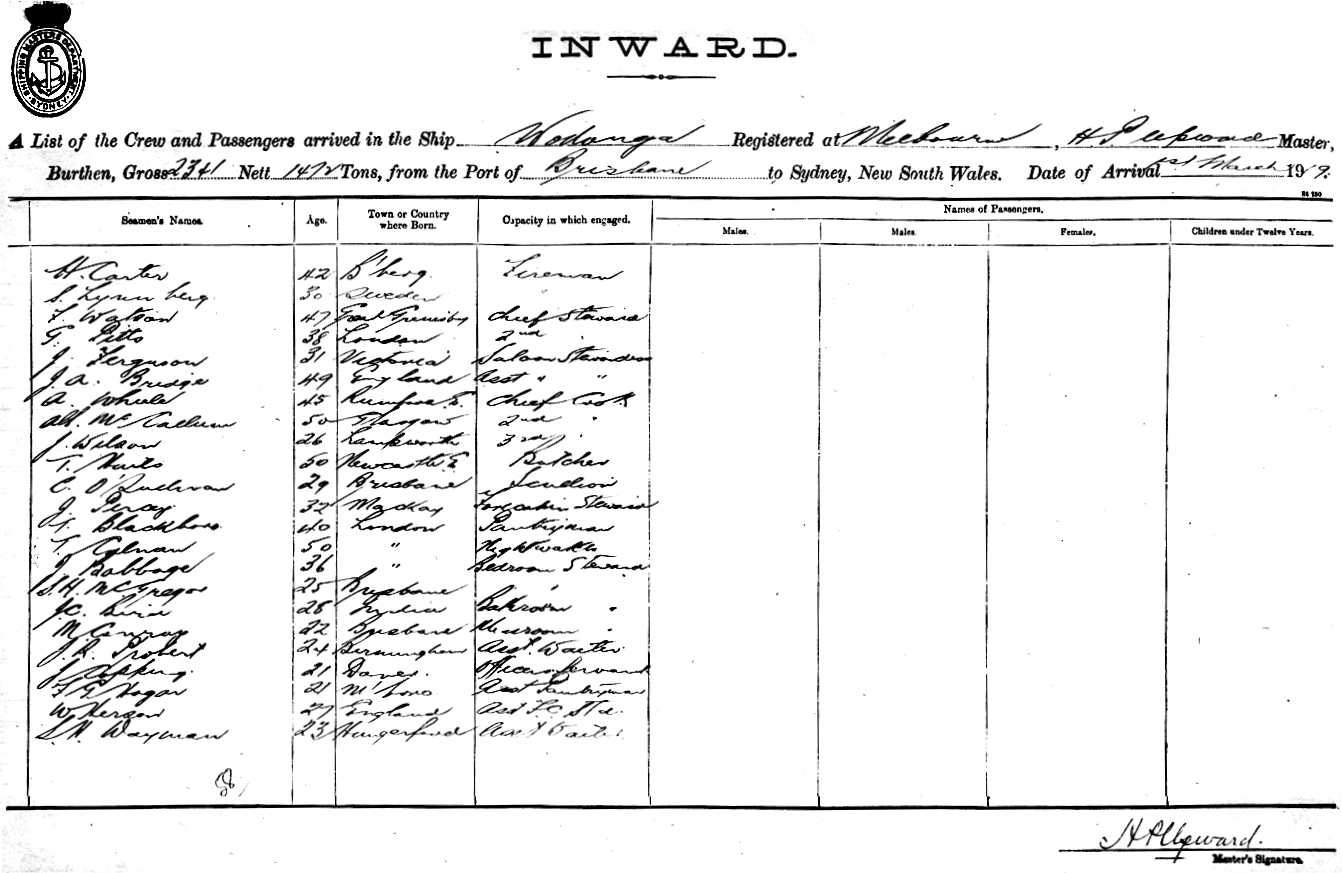 SHIPPING MASTERS DEPARTMENT
SYDNEY
INWARD.
A List of the Crew and Passengers arrived in the Ship Wodonga Registered at Melbourne, H P Upward Master,
Burthen, Gross 2341 Nett 1472 Tons, from the Port of Brisbane to Sydney, New South Wales. Date of Arrival 1st March 19 9.
Seamen's Names. Age. Town or Country where Born. Capacity in which engaged. Names of Passengers.
Males. Males. Females. Children under Twelve Years.
H. Carter 42 B'berg. Fireman
S. berg 30 Sweden "
F. Watson 47 Great Grimsby Chief Steward
G. Pitts 38 London 2nd "
J. Ferguson 31 Victoria Saloon
J. A. Bridge 49 England Asst " "
A. 45 Chief Cook
Alx. McCallum 50 Glasgow 2nd "
J. Wilson 26 3rd "
T. 50 Newcastle E Butcher
C. O'Sullivan 29 Brisbane Scullion
J. Percy 32 Mackay Forecabin Steward
40 London Pantryman
T. 50 "
J. Babbage 36 " Bedroom Steward
S. H. McGregor 25 Brisbane "
J C. 28 India Bathroom "
M. Conroy 22 Brisbane Messroom "
J. R. Probert 24 Birmingham Asst. Waiter
J 21 Officers Servant
F G Hogan 21 M'boro Asst Pantryman
W 27 England Asst F.C. Std.
S. H. Wayman 23 Hungerford Asst Waiter
H P Upward.
Master's Signature.